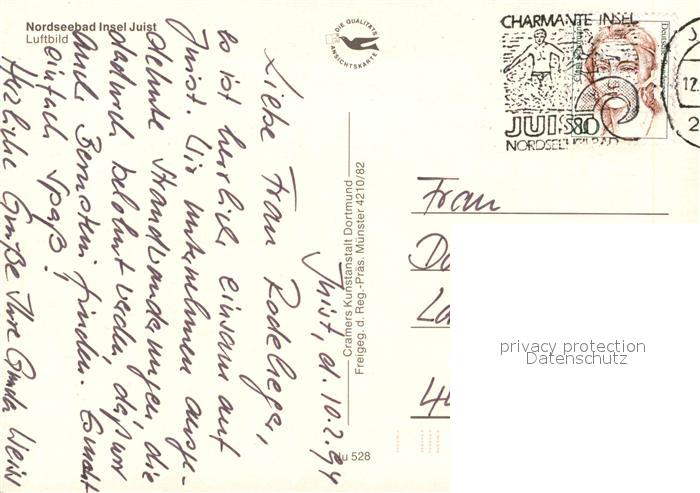 Nordseebad Insel Juist
Luftbild
DIE QUALITÄTS
ANSICHTSKARTE
CHARMANTE INSEL
JUIST
NORDSEEHEILBAD
80
Deutsche
J
12.
2
Juist, d. 10.2.94
Liebe Frau
es ist herrlich einsam auf
Juist. Wir unternehmen ausge-
dehnte Strandwanderungen, die
dadurch belohnt werden, daß wir
auch Bernstein finden. Es macht
einfach Spaß!
Herzliche Grüße Ihre Weiß
Cramers Kunstanstalt Dortmund
Freigeg. d. Reg.-Präs. Münster 4210/82
Ju 528
Frau
privacy protection
Datenschutz